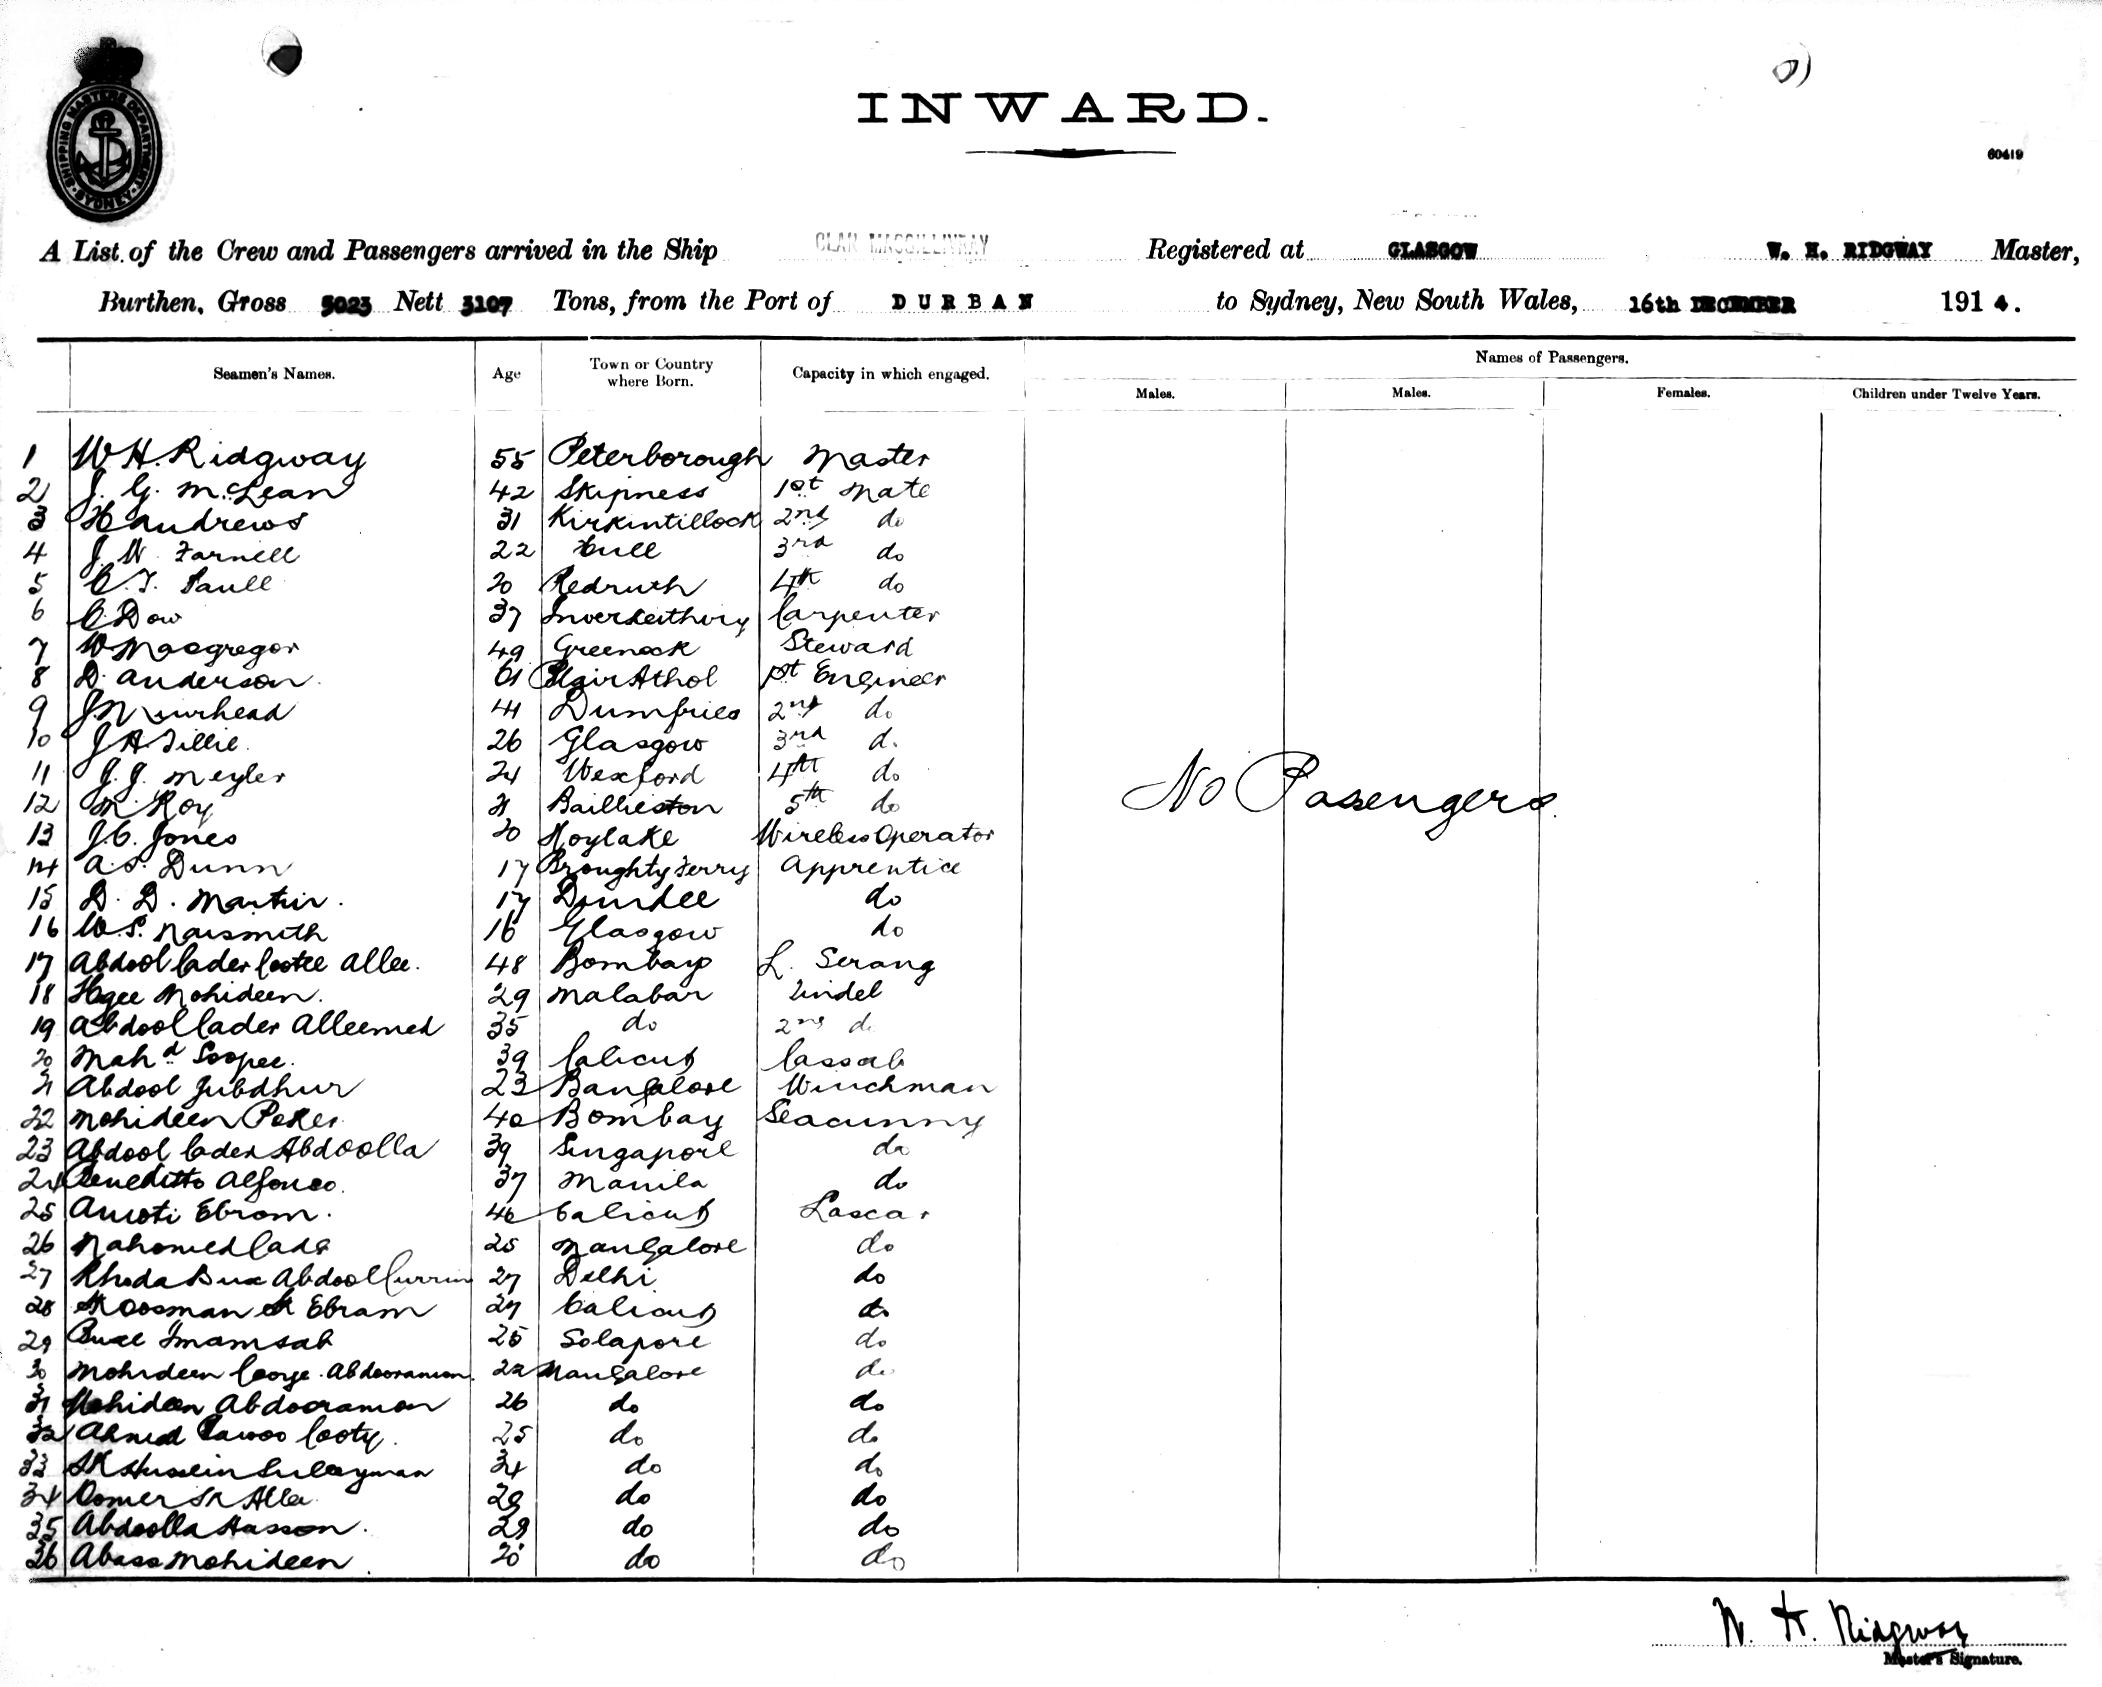 SHIPPING MASTERS DEPARTMENT SYDNEY
INWARD.
60419
A List of the Crew and Passengers arrived in the Ship CLAN MACGILLIVRAY Registered at GLASGOW W. H. RIDGWAY Master,
Burthen, Gross 5023 Nett 3107 Tons, from the Port of DURBAN to Sydney, New South Wales, 16th DECEMBER 1914.
Seamen's Names. Age Town or Country where Born. Capacity in which engaged. Names of Passengers.
Males. Males. Females. Children under Twelve Years.
1 W H. Ridgway 55 Peterborough Master
2 J. G. McLean 42 Skipness 1st Mate
3 H Andrews 31 Kirkintillock 2nd do
4 J. W Farnell 22 Hull 3rd do
5 C. T. Paull 20 Redruth 4th do
6 C. Dow 37 Inverkeithing Carpenter
7 W Macgregor 49 Greenock Steward
8 D. Anderson 61 Blair Athol 1st Engineer
9 J Muirhead 41 Dumfries 2nd do
10 J A Tillie 26 Glasgow 3rd do
11 J. J. Meyler 24 Wexford 4th do
12 M. Roy 21 Baillieston 5th do
13 J. C. Jones 20 Hoylake Wireless Operator
14 A. S. Dunn 17 Broughty Ferry Apprentice
15 D. D. Martin. 17 Dundee do
16 W. S. Naismith 16 Glasgow do
17 Abdool Cader Cootee Allee. 48 Bombay L. Serang
18 Mohideen. 29 Malabar Tindel
19 Abdool Cader Alleemed 35 do 2nd do
20 Mahd Soopee. 39 Calicut Cassab
21 Abdool Jubdhur 23 Bangalore Winchman
22 Mohideen Poker 40 Bombay Seacunny
23 Abdool Cader Abdoolla 39 Singapore do
24 Beneditto Alfonso. 37 Manila do
25 Ebram. 40 Calicut Lascar
26 Mahomed Cader 25 Mangalore do
27 Khoda Bux Abdool Currim 27 Delhi do
28 Sk Oosman Sk Ebram 27 Calicut do
29 Imamsab 25 Solapore do
30 Mohideen Abdooraman. 22 Mangalore do
31 Mohideen Abdooraman 26 do do
32 Ahmed Bawoo Cooty. 25 do do
33 Sk Hussein Suleyman 34 do do
34 Oomer Sk Alla 29 do do
35 Abdoolla Hasson. 29 do do
36 Abass Mohideen 20 do do
No Passengers.
W. H. Ridgway
Master's Signature.